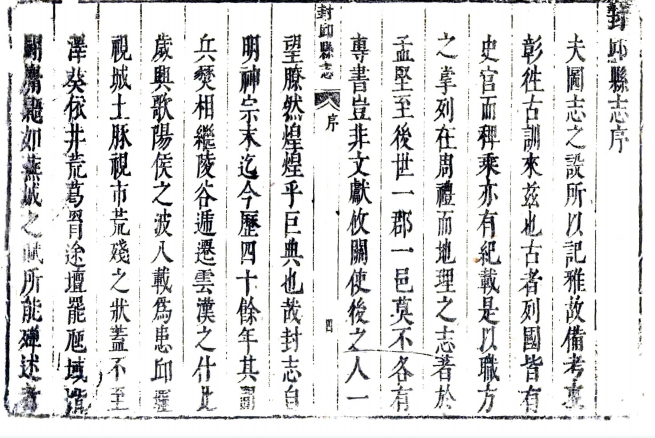 封邱縣志序
夫圖志之設所以記雅故備考
彰往古訓來茲也古者列國皆有
史官而稗乘亦有紀載是以職方
之掌列在周禮而地理之志著於
孟堅至後世一郡一邑莫不各有
專書豈非文獻攸關使後之人一
封邱縣志
序
四
望瞭然煌煌乎巨典也哉封志自
明神宗末迄今歷四十餘年其間
兵燹相繼陵谷遞遷雲漢之什比
歲興歌陽侯之波八載為患邱壟
視城土豚視市荒殘之狀蓋不至
澤葵依井荒葛罥途壇羅虺蜮階
鬭麏鼯如蕪城之賦所能殫述者